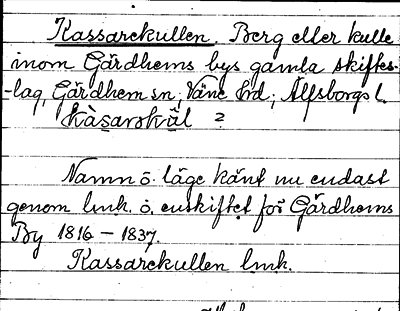 Kassarekullen. Berg eller kulle
inom Gärdhems bys gamla skiftes-
-lag, Gärdhem sn, Väne hrd, Älfsborgs l.
Kàsarshväl ?
Namn o. läge känt nu endast
genom lmh. o. enskiftet för Gärdhems
By 1816 – 1837.
Kassarekullen lmh.